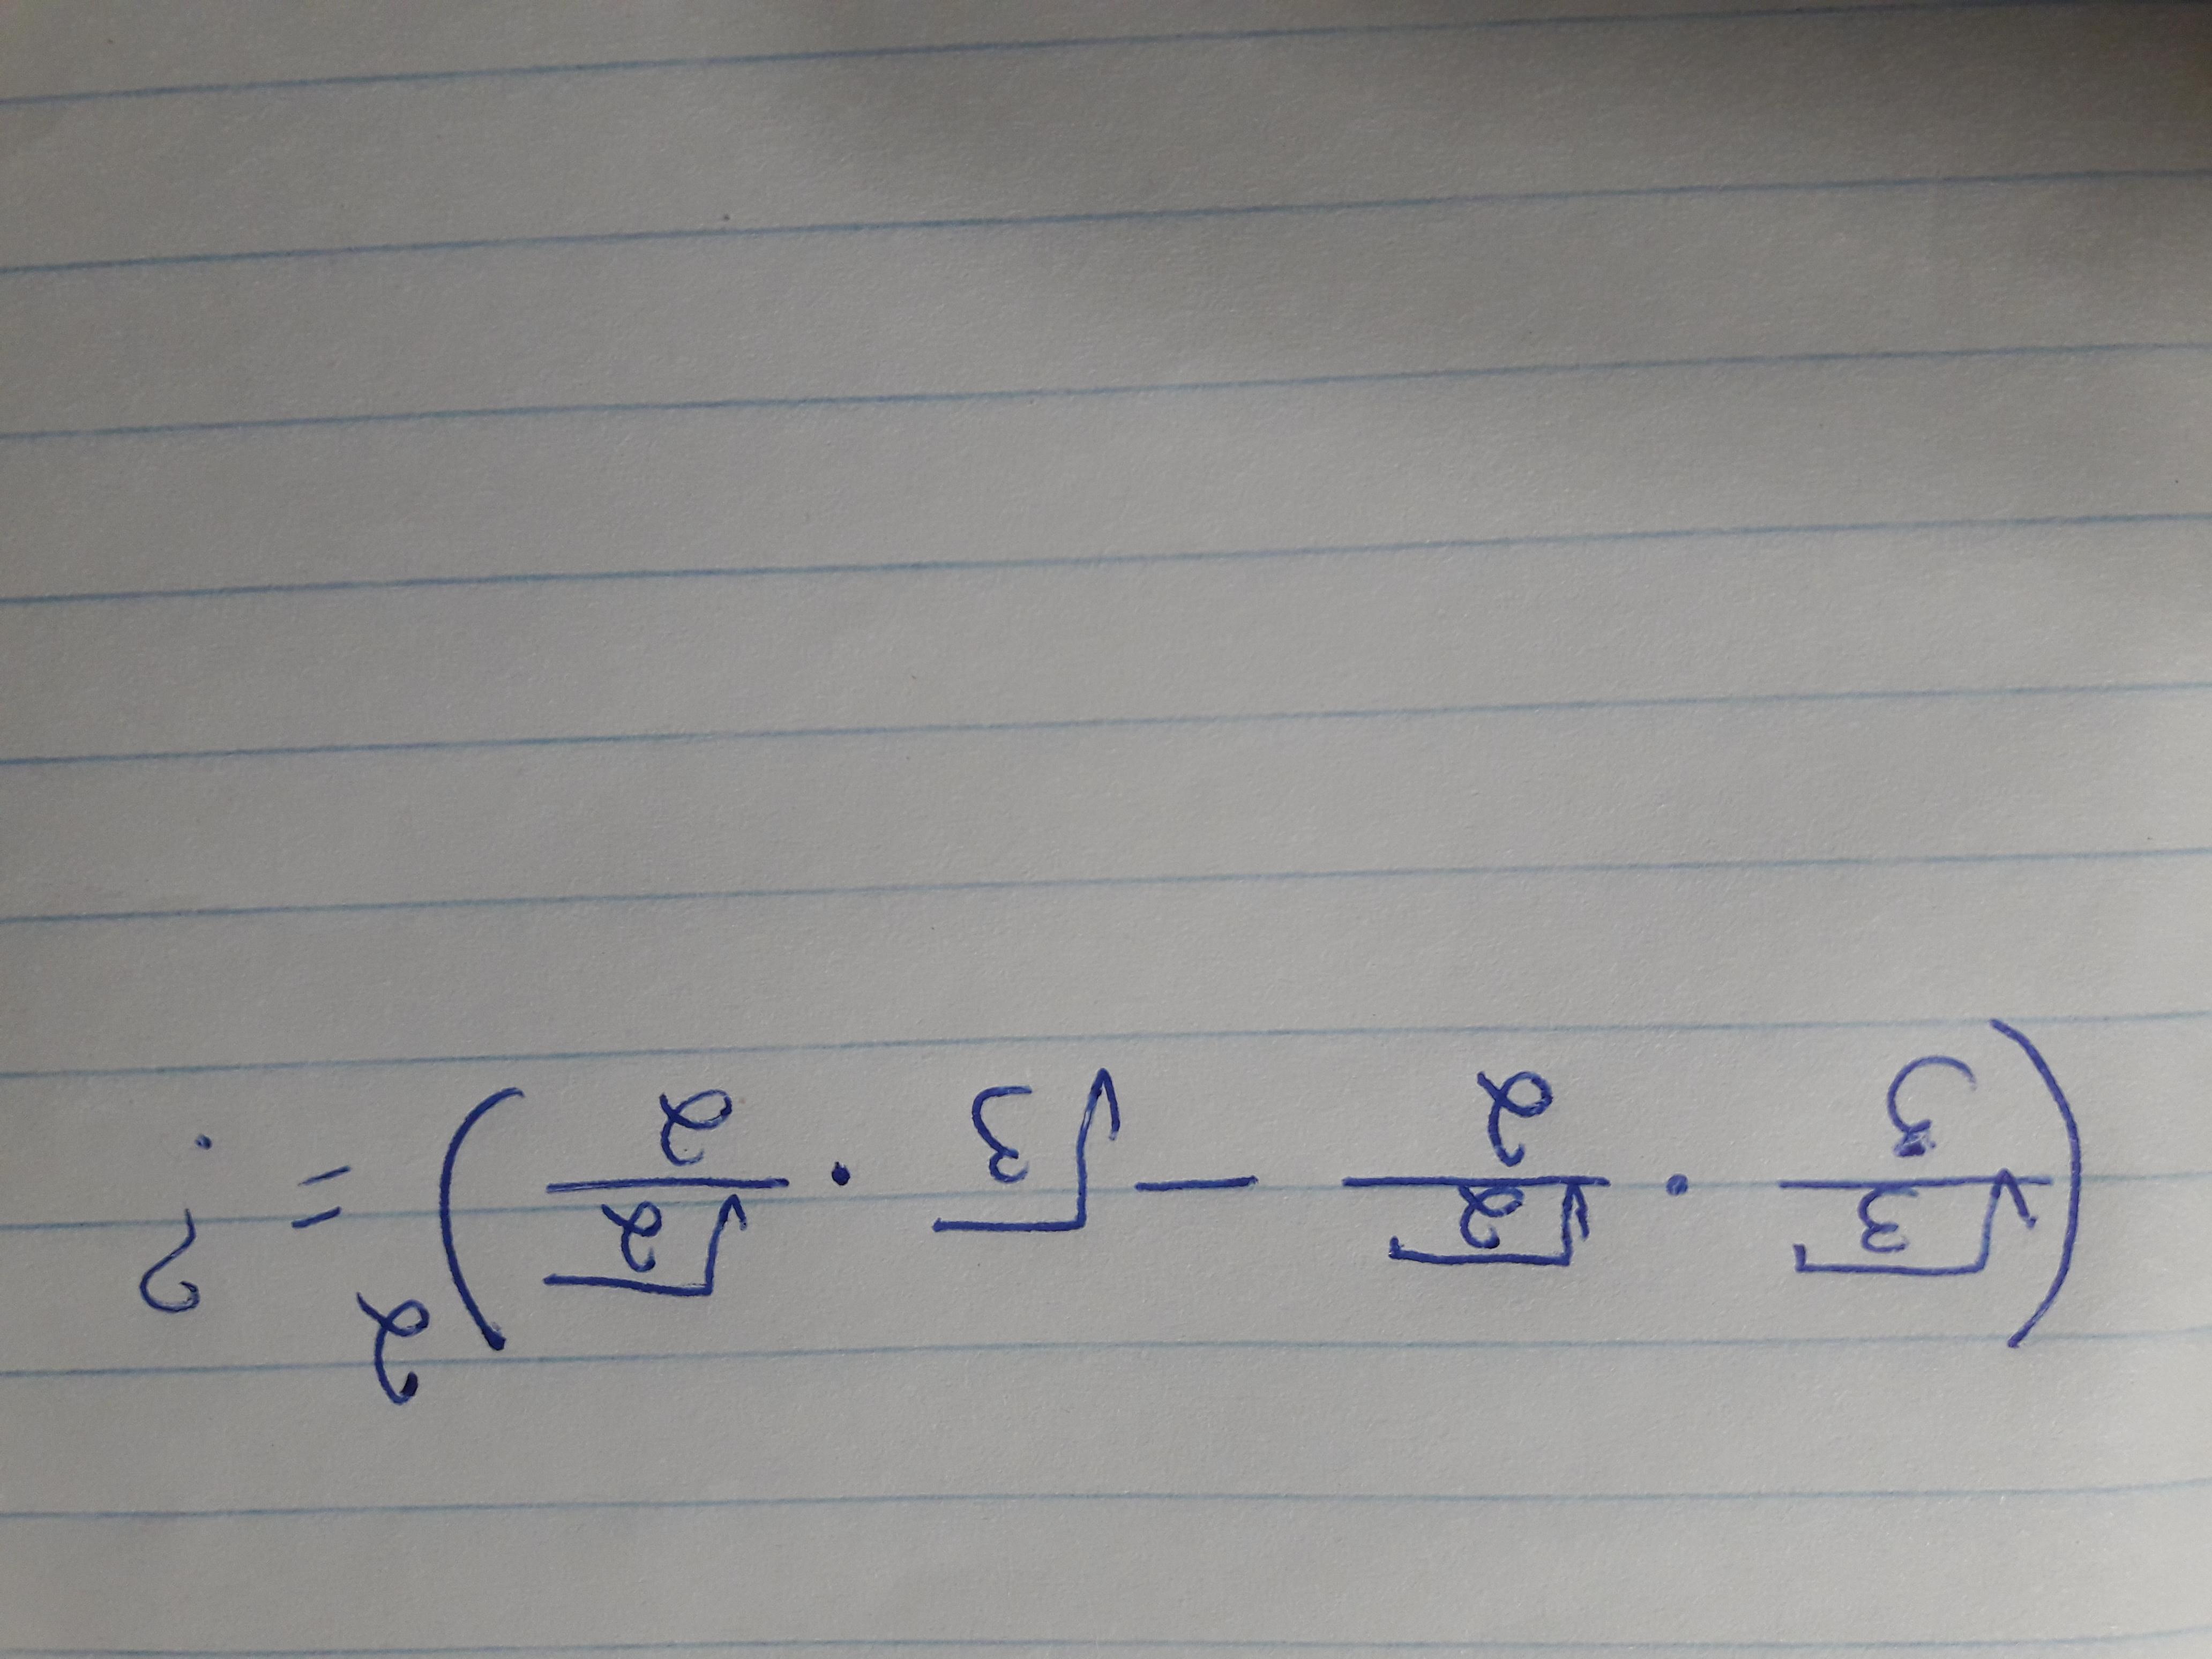 (√3/3 · √2/2 − √3 · √2/2)² = ?